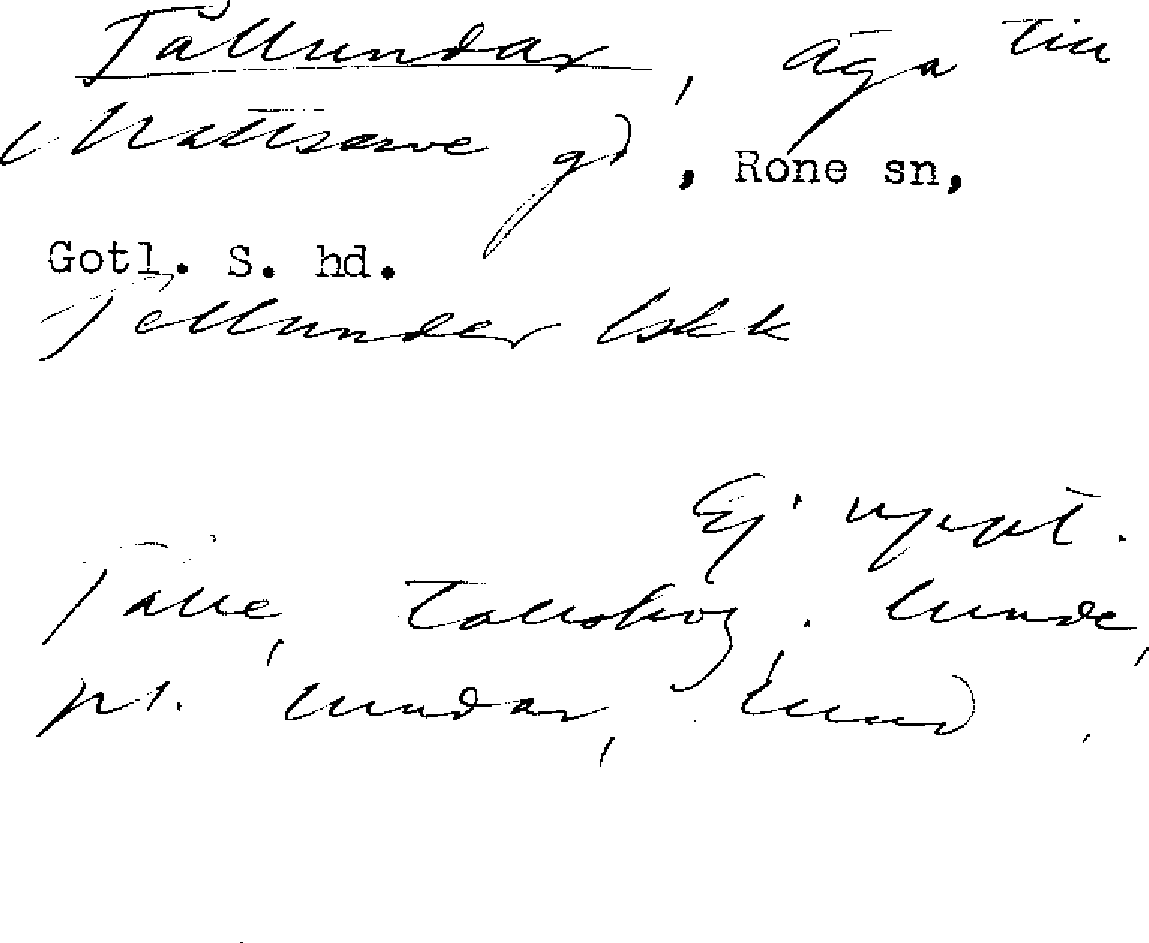 Tällundar, äga till
Mattsarve gd, Rone sn,
Gotl. S. hd.
Tellunder lskk
Ej uppt.
Tälle, tallskog. lunde,
pl. lundar, lund.